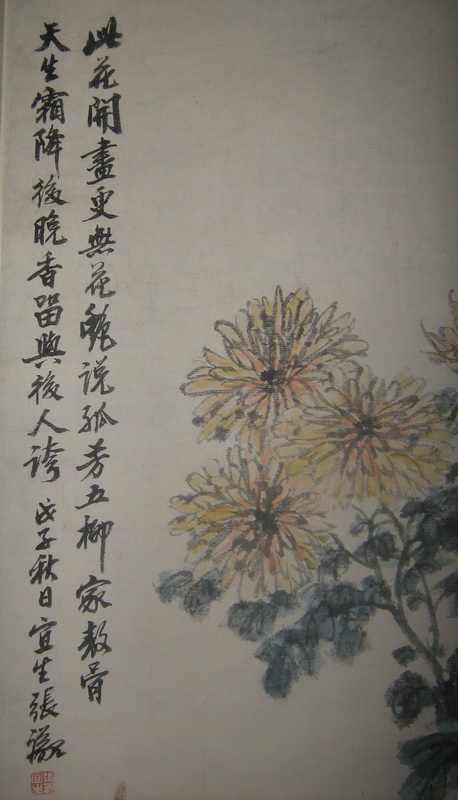 此花開盡更無花艷说孤芳五柳家敖骨
天生霜降後晚香留與後人誇 戊子秋日宜生張